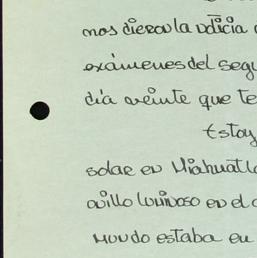 nos dieron la noticia
exámenes del segu
día veinte que te
Estoy
solar en Miahuatl
anillo luminoso en el c
mundo estaba en